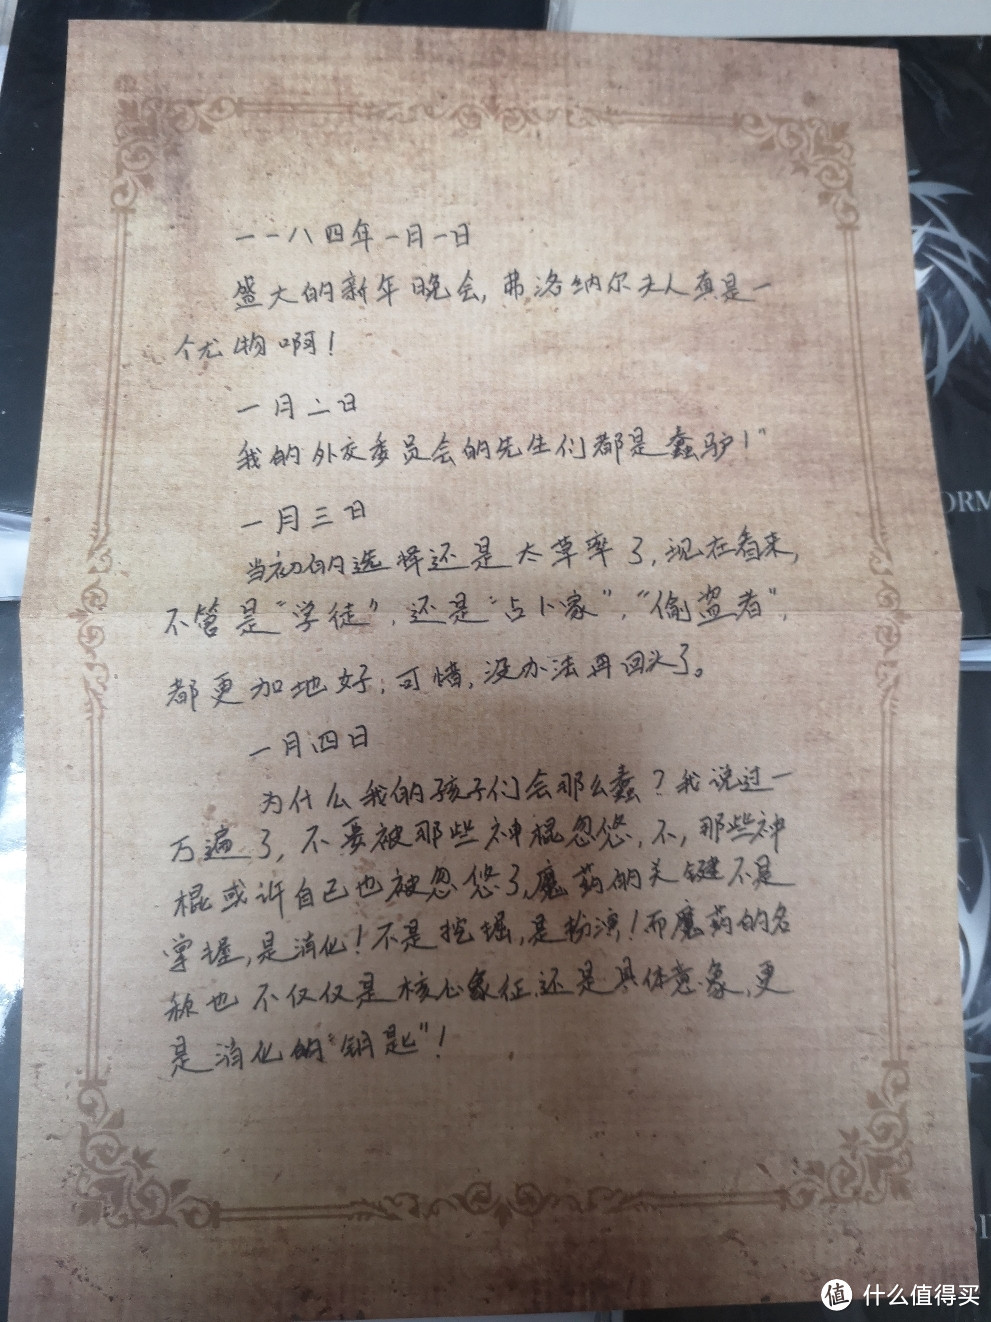 一一八四年一月一日
盛大的新年晚会，弗洛纳尔夫人真是一
个尤物啊！
一月二日
我的外交委员会的先生们都是蠢驴！”
一月三日
当初的选择还是太草率了，现在看来，
不管是“学徒”，还是“占卜家”，“偷盗者”，
都更加地好，可惜，没办法再回头了。
一月四日
为什么我的孩子们会那么蠢？我说过一
万遍了，不要被那些神棍忽悠，不，那些神
棍或许自己也被忽悠了，魔药的关键不是
掌握，是消化！不是挖掘，是扮演！而魔药的名
称也不仅仅是核心象征，还是具体意象，更
是消化的“钥匙”！
ORM
值 什么值得买